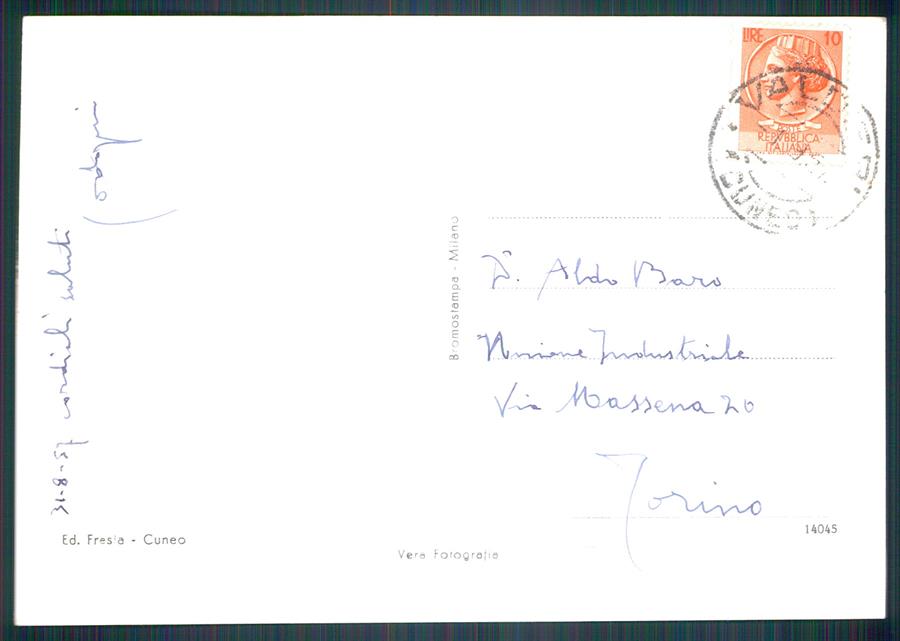 LIRE 10
POSTE
REPVBBLICA
ITALIANA
(CUNEO)
31-8-57 cordiali saluti
Bromostampa - Milano
D. Aldo Baro
Unione Industriale
Via Massena 20
Torino
14045
Ed. Fresia - Cuneo
Vera Fotografia